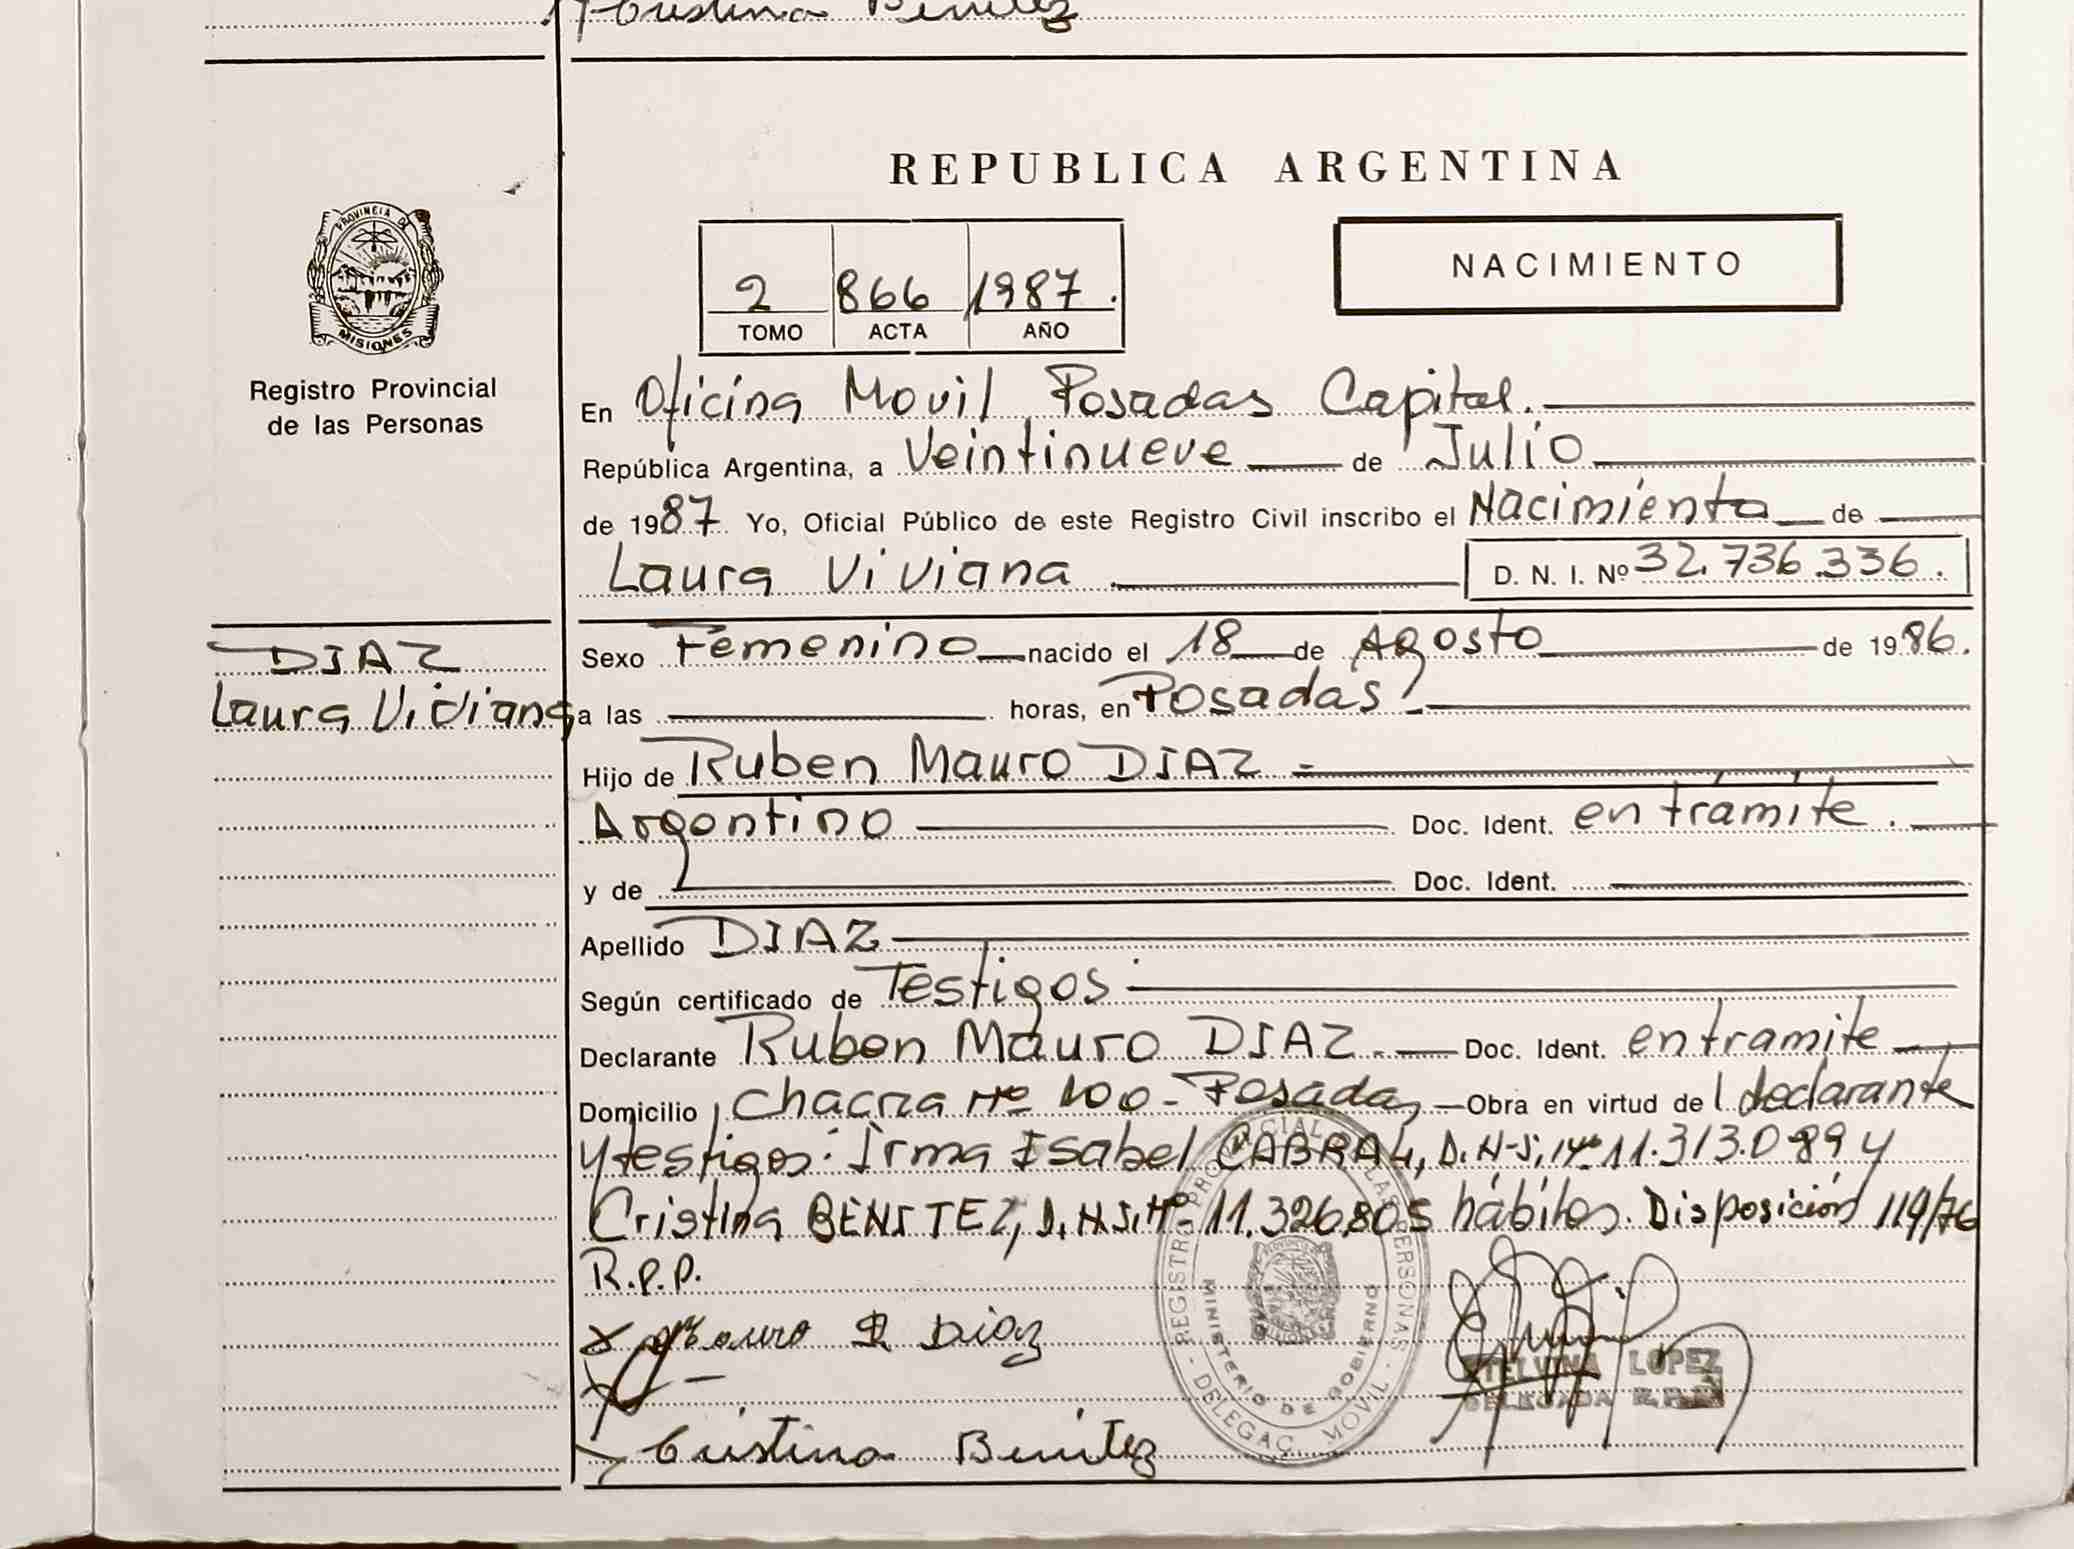 Cristina Benitez
REPUBLICA ARGENTINA
PROVINCIA DE
MISIONES
Registro Provincial
de las Personas
2 866 1987.
TOMO ACTA AÑO
NACIMIENTO
En Oficina Movil Posadas Capital.
República Argentina, a Veintinueve de Julio
de 1987 Yo, Oficial Público de este Registro Civil inscribo el Nacimiento de
Laura Viviana D. N. I. Nº 32.736.336.
DIAZ
Laura Viviana
Sexo Femenino nacido el 18 de Agosto de 1986.
a las horas, en Posadas
Hijo de Ruben Mauro DIAZ
Argentino Doc. Ident. en trámite.
y de Doc. Ident.
Apellido DIAZ
Según certificado de Testigos
Declarante Ruben Mauro DIAZ. Doc. Ident. en tramite
Domicilio Chacra Nº 100 - Posadas Obra en virtud del declarante
y testigos: Irma Isabel CABRAL, D.N.I. Nº 11.313.089 y
Cristina BENITEZ, D.N.I. Nº 11.326.805 hábiles. Disposición 119/76
R.P.P.
Mauro R Diaz
Cristina Benitez
REGISTRO PROVINCIAL DE LAS PERSONAS
MINISTERIO DE GOBIERNO
DELEGAC. MOVIL
ETELVINA LOPEZ
DELEGADA R.P.P.